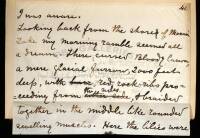 I was aware.
Looking back from the shores of Mono
Lake my morning ramble seemed all
a dream. There curved Bloody Canyon
a mere glacial furrow, 2000 feet
deep, with red rocks pro-
ceeding from & braided
together in the middle like rounded
swelling muscles. Here the lilies were